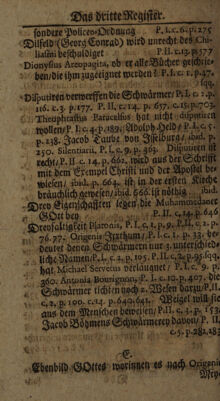 Das dritte Register.
sondere Policey-Ordnung P. I. c. 6. p. 275
Dilfeld (Georg Conrad) wird unrecht des Chiliasmi
beschuldiget P. II. c. 13. p. 577
Dionysius Areopagita, ob er alle Bücher geschrieben/
die ihm zugeeignet werden? P. I. c. 1. p. 47.
sqq.
Disputiren verwerffen die Schwärmer P. I. c. 1. p.
116. c. 3. p. 177. P. II. c. 14. p. 657. c. 15. p. 703.
Theophrastus Paracelsus hat nicht disputiren
wollen/ P. I. c. 4. p. 189. Adolph Held/ P. I. c. 5.
p. 238. Jacob Taubs von Isselburg/ ibid. p.
250. Silentiarii, P. I. c. 9. p. 369. Disputiren ist
recht/ P. II. c. 14. p. 662. wird aus der Schrifft
mit dem Exempel Christi und der Apostel bewiesen/
ibid. p. 664. ist in der ersten Kirche
bräuchlich gewesen/ ibid. 666. ist nöthig ibid.
Drey Eigenschafften legen die Muhammedaner
GOtt bey P. II. c. 14. p. 640
Dreyfaltigkeit Platonis, P. I. c. 1. p. 9. P. II. c. 1. p.
76. 77. Origenis Irrthum/ P. I. c. 1. p. 33. bedeutet
deren Schwärmern nur 3. unterschiedliche
Namen/ P. I. c. 2. p. 105. P. II. c. 2. p. 95. sqq.
hat Michael Servetus verläugnet/ P. I. c. 9. p.
360. Antonia Bourignon, P. I. c. 10. p. 407. die
Schwärmer tichten noch 2. Wesen darzu/ P. II.
c. 2. p. 100. c. 14. p. 640. 641. Weigel will sie
aus dem Menschen beweisen/ P. II. c. 3. p. 153.
Jacob Böhmens Schwärmerey davon/ P. II.
c. 5. p. 282. 283
E.
Ebenbild GOttes worinnen es nach Origenis